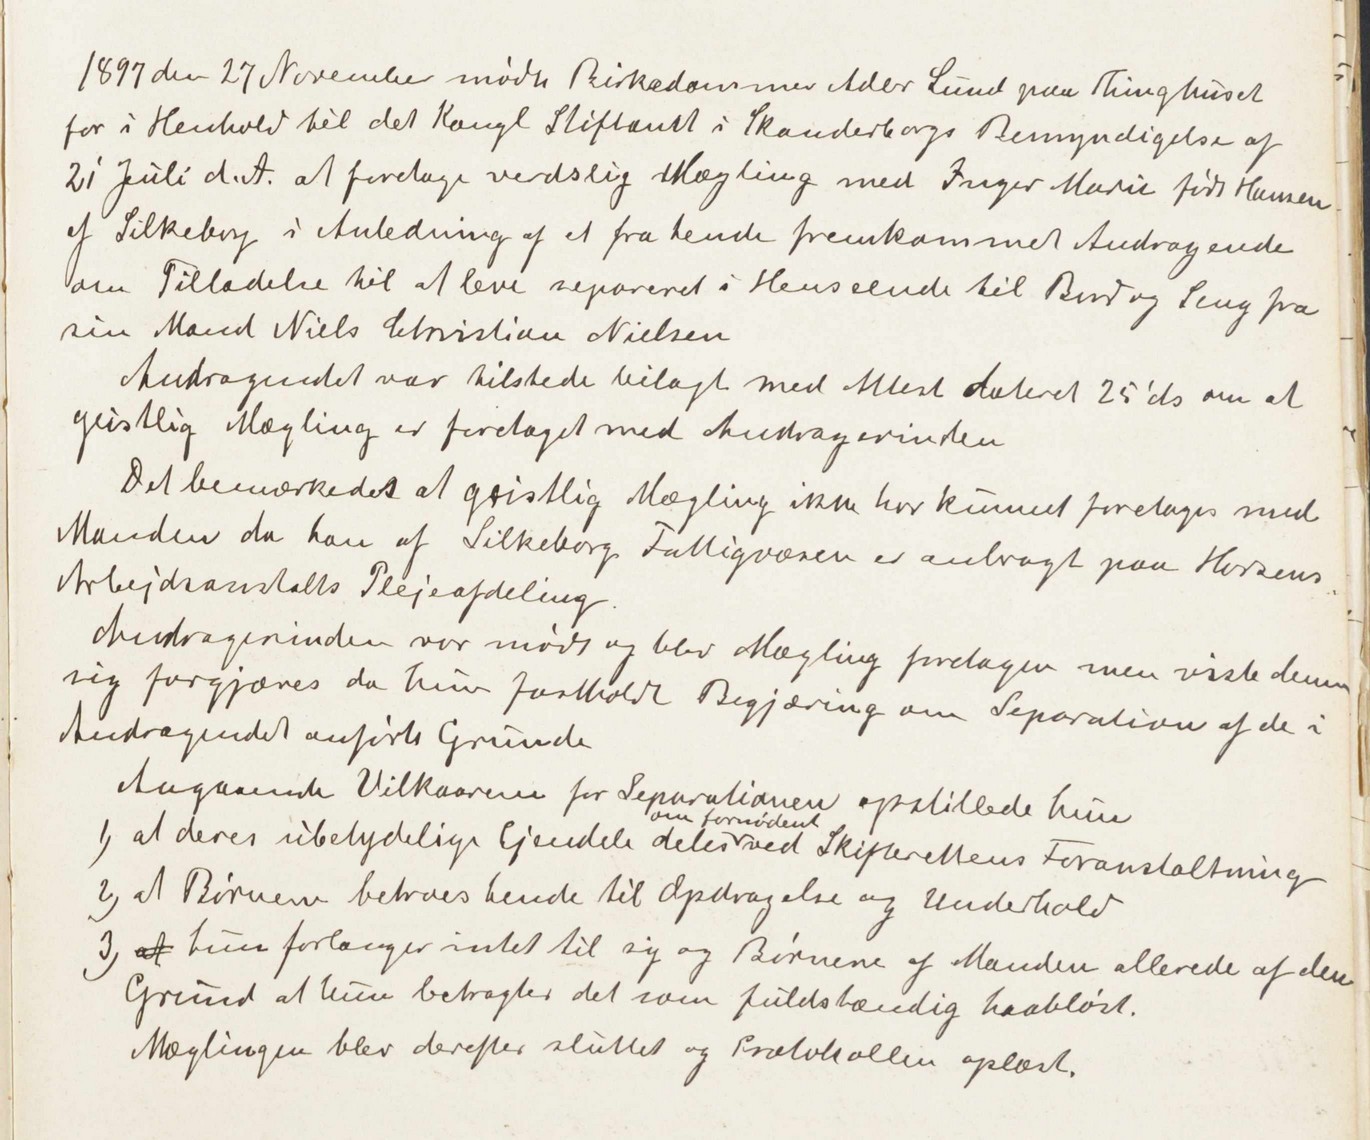 1897 den 27 November mødte Birkedommer Adler Lund paa Thinghuset
for i Henhold til det Kongl Stiftamt i Skanderborgs Bemyndigelse af
21 Juli d.A. at foretage verdslig Mægling med Inger Marie født Hansen
af Silkeborg i Anledning af et fra hende fremkommet Andragende
om Tilladelse til at leve separeret i Henseende til Bord og Seng fra
sin Mand Niels Christian Nielsen
Andragendet var tilstede bilagt med Attest dateret 25' ds om at
geistlig Mægling er foretaget med Andragerinden
Det bemærkedes at geistlig Mægling ikke har kunnet foretages med
Manden da han af Silkeborg Fattigvæsen er anbragt paa Horsens
Arbejdsanstalts Plejeafdeling.
Andragerinden var mødt og blev Mægling foretagen men viste denne
sig forgjæves da hun fastholdt Begjæring om Separation af de i
Andragendet anførte Grunde
Angaaende Vilkaarene for Separationen opstillede hun
om fornødent
1) at deres ubetydelige Ejendele deles ved Skifterettens Foranstaltning
2) at Børnene betroes hende til Opdragelse og Underhold
3) at hun forlanger intet til sig og Børnene af Manden allerede af den
Grund at hun betragter det som fuldstændig haabløst.
Mæglingen blev derefter sluttet og Protokollen oplæst.